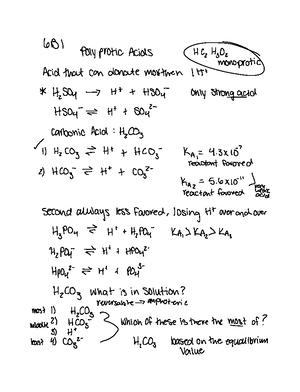 6B1
Polyprotic Acids
HC₂H₃O₂
monoprotic
Acid that can donate more then 1 H⁺
* H₂SO₄ → H⁺ + HSO₄⁻ only strong acid
HSO₄⁻ ⇌ H⁺ + SO₄²⁻
Carbonic Acid: H₂CO₃
1) H₂CO₃ ⇌ H⁺ + HCO₃⁻ KA₁ = 4.3x10⁻⁷
reactant favored
2) HCO₃⁻ ⇌ H⁺ + CO₃²⁻ KA₂ = 5.6x10⁻¹¹
reactant favored
Second always less favored, losing H⁺ over and over
H₃PO₄ ⇌ H⁺ + H₂PO₄⁻ KA₁ > KA₂ > KA₃
H₂PO₄⁻ ⇌ H⁺ + HPO₄²⁻
HPO₄²⁻ ⇌ H⁺ + PO₄³⁻
H₂CO₃ what is in solution?
most 1) H₂CO₃
middle 2) HCO₃⁻ Which of these is there the most of?
3) H⁺
least 4) CO₃²⁻ H₂CO₃ based on the equilibrium
value